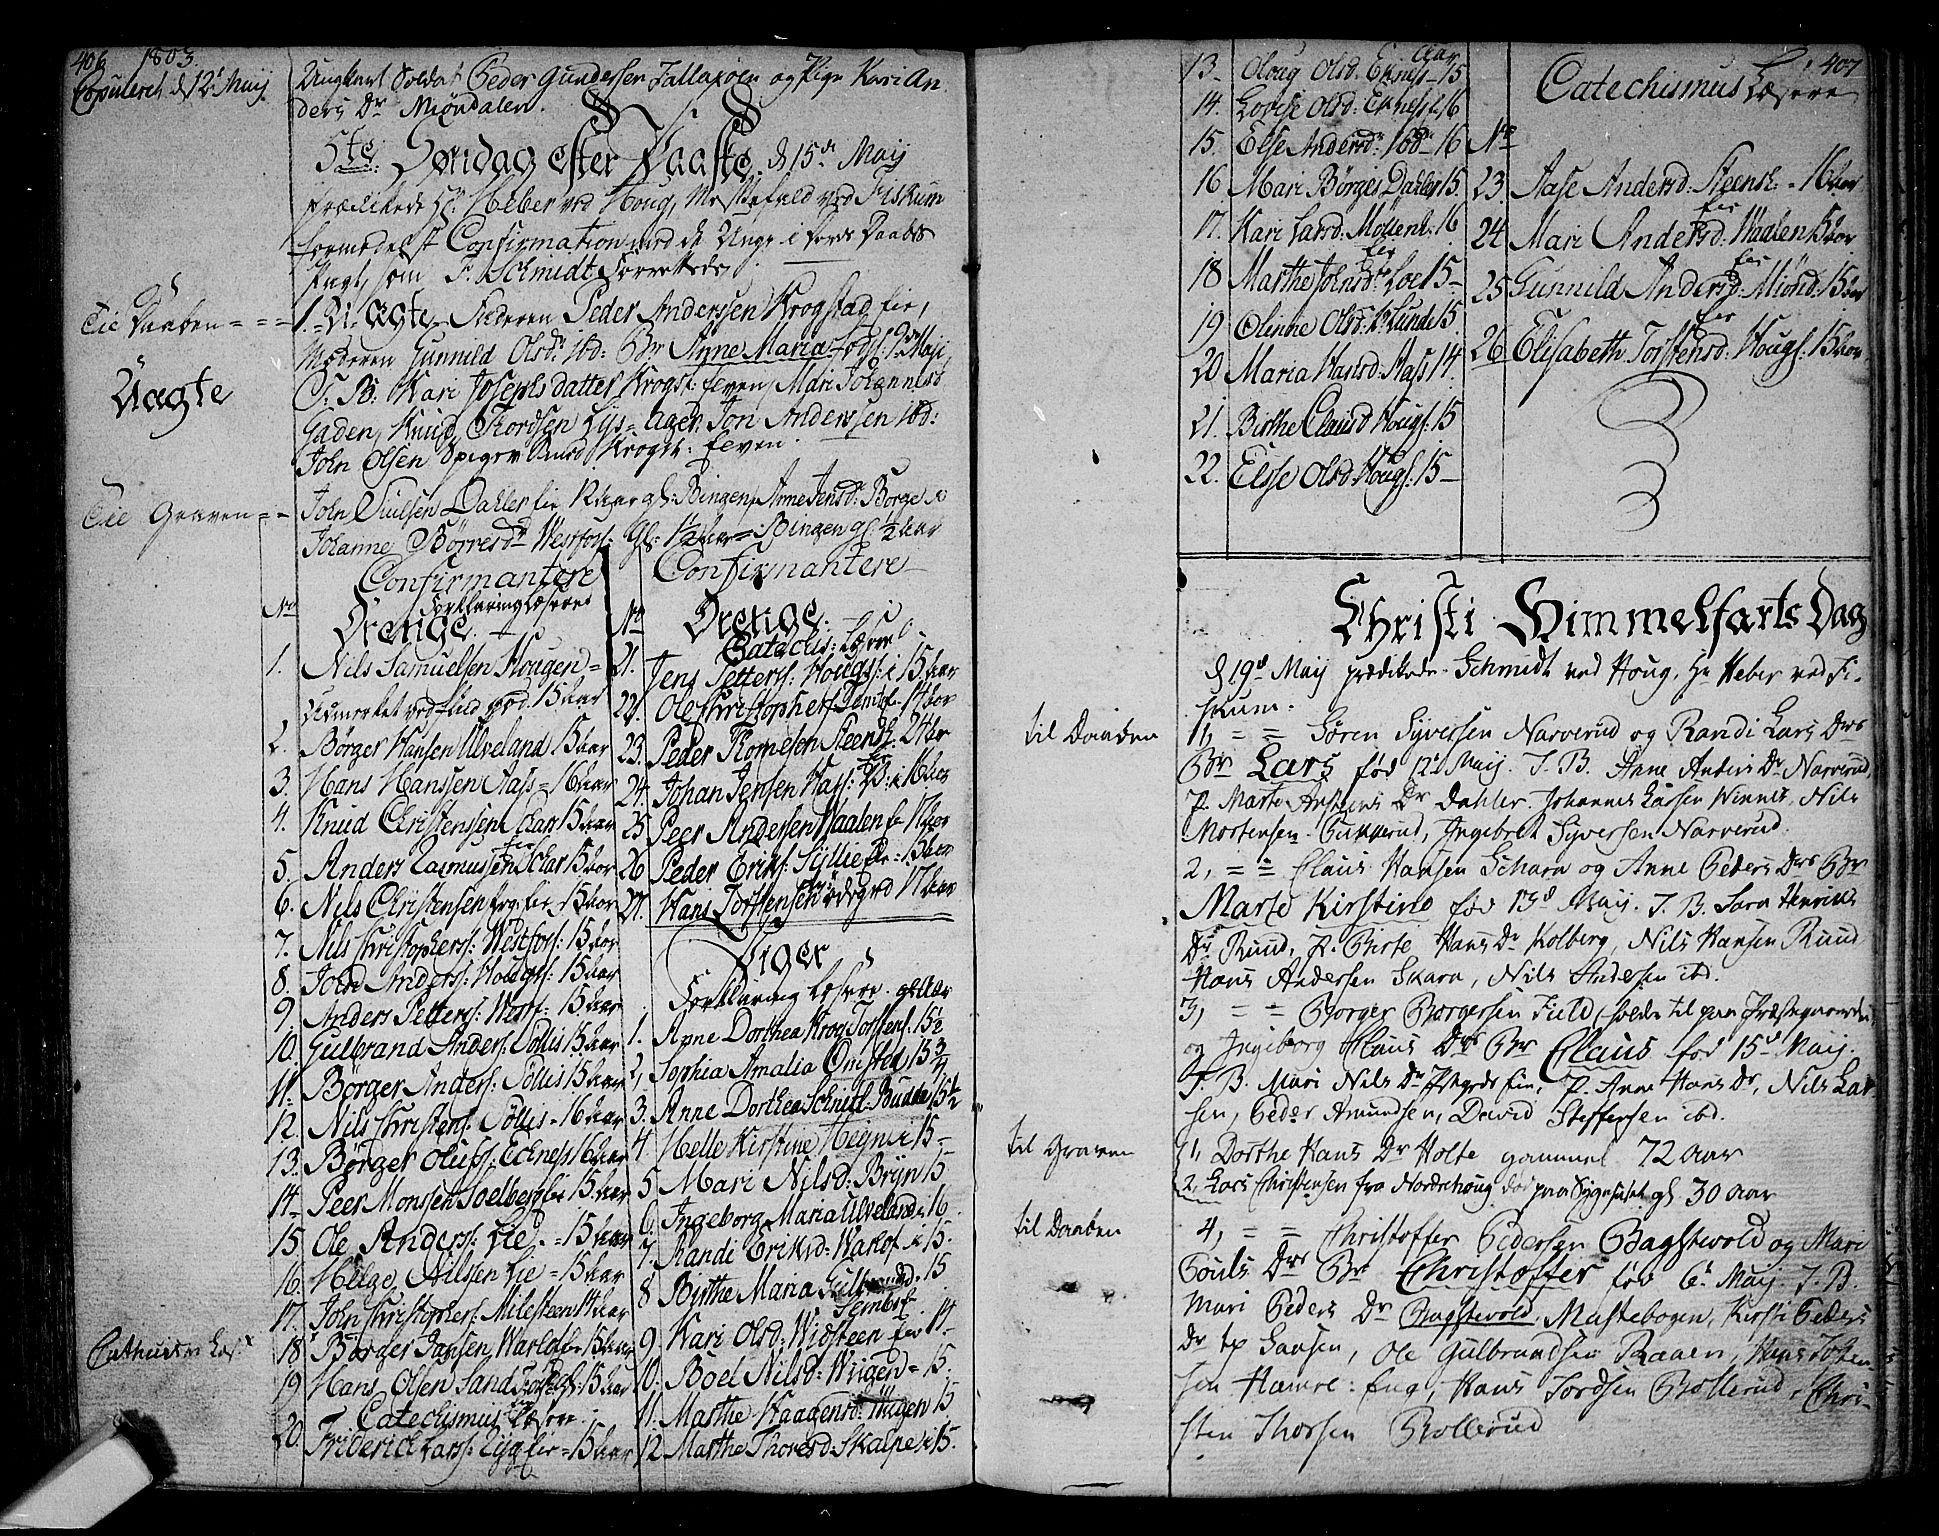 406 1803.
Copuleret d 12t Maij
Ungkarl Soldat Peder Gundersen Jallasøen og Pige Kari An
ders Dr Miøndalen.
5te Søndag efter Paaske d 15de Maij
Prædikede Hr. Heber ved Houg, Messefald ved Fiskum
formedelst Confirmation med de Unge i deres Daabes
Pagt, som F. Schmidt forrettede
Til Daaben = = =
1. = Uægte Faderen Peder Andersen Krogstad Eie,
Uægte
Moderen Gunnild Olsdr. ibd: Br Anne Maria fød: 1de Maij,
T. B: Kari Josephs datter Krogst: Eeven, Mari Johannesd
Gaden, Knud Thordsen Lÿs= ager: Jon Andersen ibd:
John Olsen Krogst: Eeven.
Til Graven = =
John Dahler Eie Bingen, Anne Jensd: Børge
Johanne Børresdr Westfos: gl: 1 1/2 Aar = Bingen gl. 1/2 Aar
Confirmantere
Forklaring Læsere
No Drenge
1. Nils Samuelsen Hougen =
15 Aar
2. Børger Hansen Ulveland 15 Aar
3. Hans Hanssen Aass = 16 Aar
4. Knud Christensen Skar 15 Aar
5. Anders Rasmussen Eie Skar 15 Aar
6. Nils Christensen Eie, 15 Aar
7. Nils Christophers: Westfos: 15 Aar
8. John Anders: Hougs: 15 Aar
9. Anders Petters: Westf: 15 Aar
10. Gulbrand Anders: Sollis 15 Aar
11. Børger Anders: Sollis 15 Aar
12. Nils Christens: Sollis = 16 Aar
13. Børger Olufs: Eknes 16 Aar
14. Peer Monsen Soelberg Eie 15 Aar
15 Ole Anders: Lie = 15 Aar
16. Helge Nilssen Lie = 15 Aar
17. John Christophers: Milesteen 14 Aar
18 Børger Jansen Warlo Eie 15 Aar
19 Hans Olsen Sand 15 Aar
Catechismus Læsere
20 Friderich Lars: Eie = 15 Aar
Confirmantere
No Drenge
Catechis: Læsere
21. Jens Petters: Hougs: 15 Aar
22. Ole Christophers 17 Aar
23. Peder Thomesen Steens: 24 Aar
24. Johan Jensen Hass: Eie 16 Aar
25 Peer Andersen Waalen Eie 17 Aar
26 Peder Eriks: Eie: 15 Aar
27. Hans Torstensen ødegrd 17 Aar
Piger
Forklaring Læsere gl: Aar
1. Anne Dorthea Krog Torstens. 15 1/2
2, Sophia Amalia Omsted 15 3/4
3. Anne Dorthea Schnitl: Budda 15 1/2
4. Helle Kirstine Hegni 15 -
5 Mari Nilsd: Brÿn 15
6 Ingeborg Maria Ulveland = 16.
7. Randi Eriksd: Hakof 15.
8 Byrthe Maria Gulbrandsd. 15
Sembsf.
9 Kari Olsd: Widsteen Eie 14.
10. Boel Nilsd: Wiigen = 15.
11. Marthe Haagensd: Wiigen 15
12. Marthe Thoresd: Skalpe 15.
Aar
13 Olaug Olsd. Eknes 15
14. Lovise Olsd: Eknes 16
15. Else Andersdr ibd 16
16. Mari Børges Dahler 15
17. Kari Larsd: Møllenh: 16
Eie
18 Marthe Johnsd: Loe 15
19 Olinne Olsd: Kr Lunde 15.
20 Maria Hansd: Hass 14.
21. Birthe Clausd Hougs: 15
22. Else Olsd: Hougs: 15
407
Catechismus Læsere
No
23. Aase Andersd: Steens: = 16 Aar
Eie
24 Mari Andersd: Waalen 15 Aar
Eie
25 Gunnild Andersd: Miønd: 15 Aar
Eie
26 Elisabeth Torstensd: Hougs: 15 Aar
Christi Himmelfarts Dag
d 19de Maij prædikede Schmidt ved Houg, Hr Heber ved Fi
skum.
Til Daaben
1, = = Søren Syversen Narverud og Randi Lars Drs
Br Lars fød 12d Maij. T. B. Anne Anders Dr Narverud,
P. Marte Anstens Dr Dahler. Johannes Larsen Winnes, Nils
Mortensen Gukkerud, Ingebret Syversen Narverud.
2, = = Claus Hansen Scharn og Anne Peders Drs Br
Marte Kirstine fød 13d Maij. T. B. Sara Henriks
Dr Ruud, P. Birte Hans Dr Kolberg, Nils Hansen Ruud,
Hans Andersen Skarn, Nils Andersen ibd.
3, = = Borger Borgersen Field Soldat til paa Præstegaarden
og Ingeborg Claus Drs Br Claus fød 15d Maij.
T. B. Mari Nils Dr Eie, P. Anne Hans Dr, Nils Lar
sen, Peder Amundsen, David Steffensen ibd.
Til Graven
1, Dorthe Hans Dr Holte gammel 72 Aar
2. Lars Christensen fra Norderhoug død paa Sygehuset gl 30 Aar
Til Daaben
4, = = Christoffer Pedersen Bagstevold og Mari
Pouls Drs Br Christoffer fød 6t Maij. T. B.
Mari Peders Dr Bagstevold, Mastebogen, Kirsti Peders
Dr Hansen, Ole Gulbrandsen Raaen, Hans
sen Hamre: Eng, Hans Tordsen Bollerud, Chri
sten Thorsen Bollerud